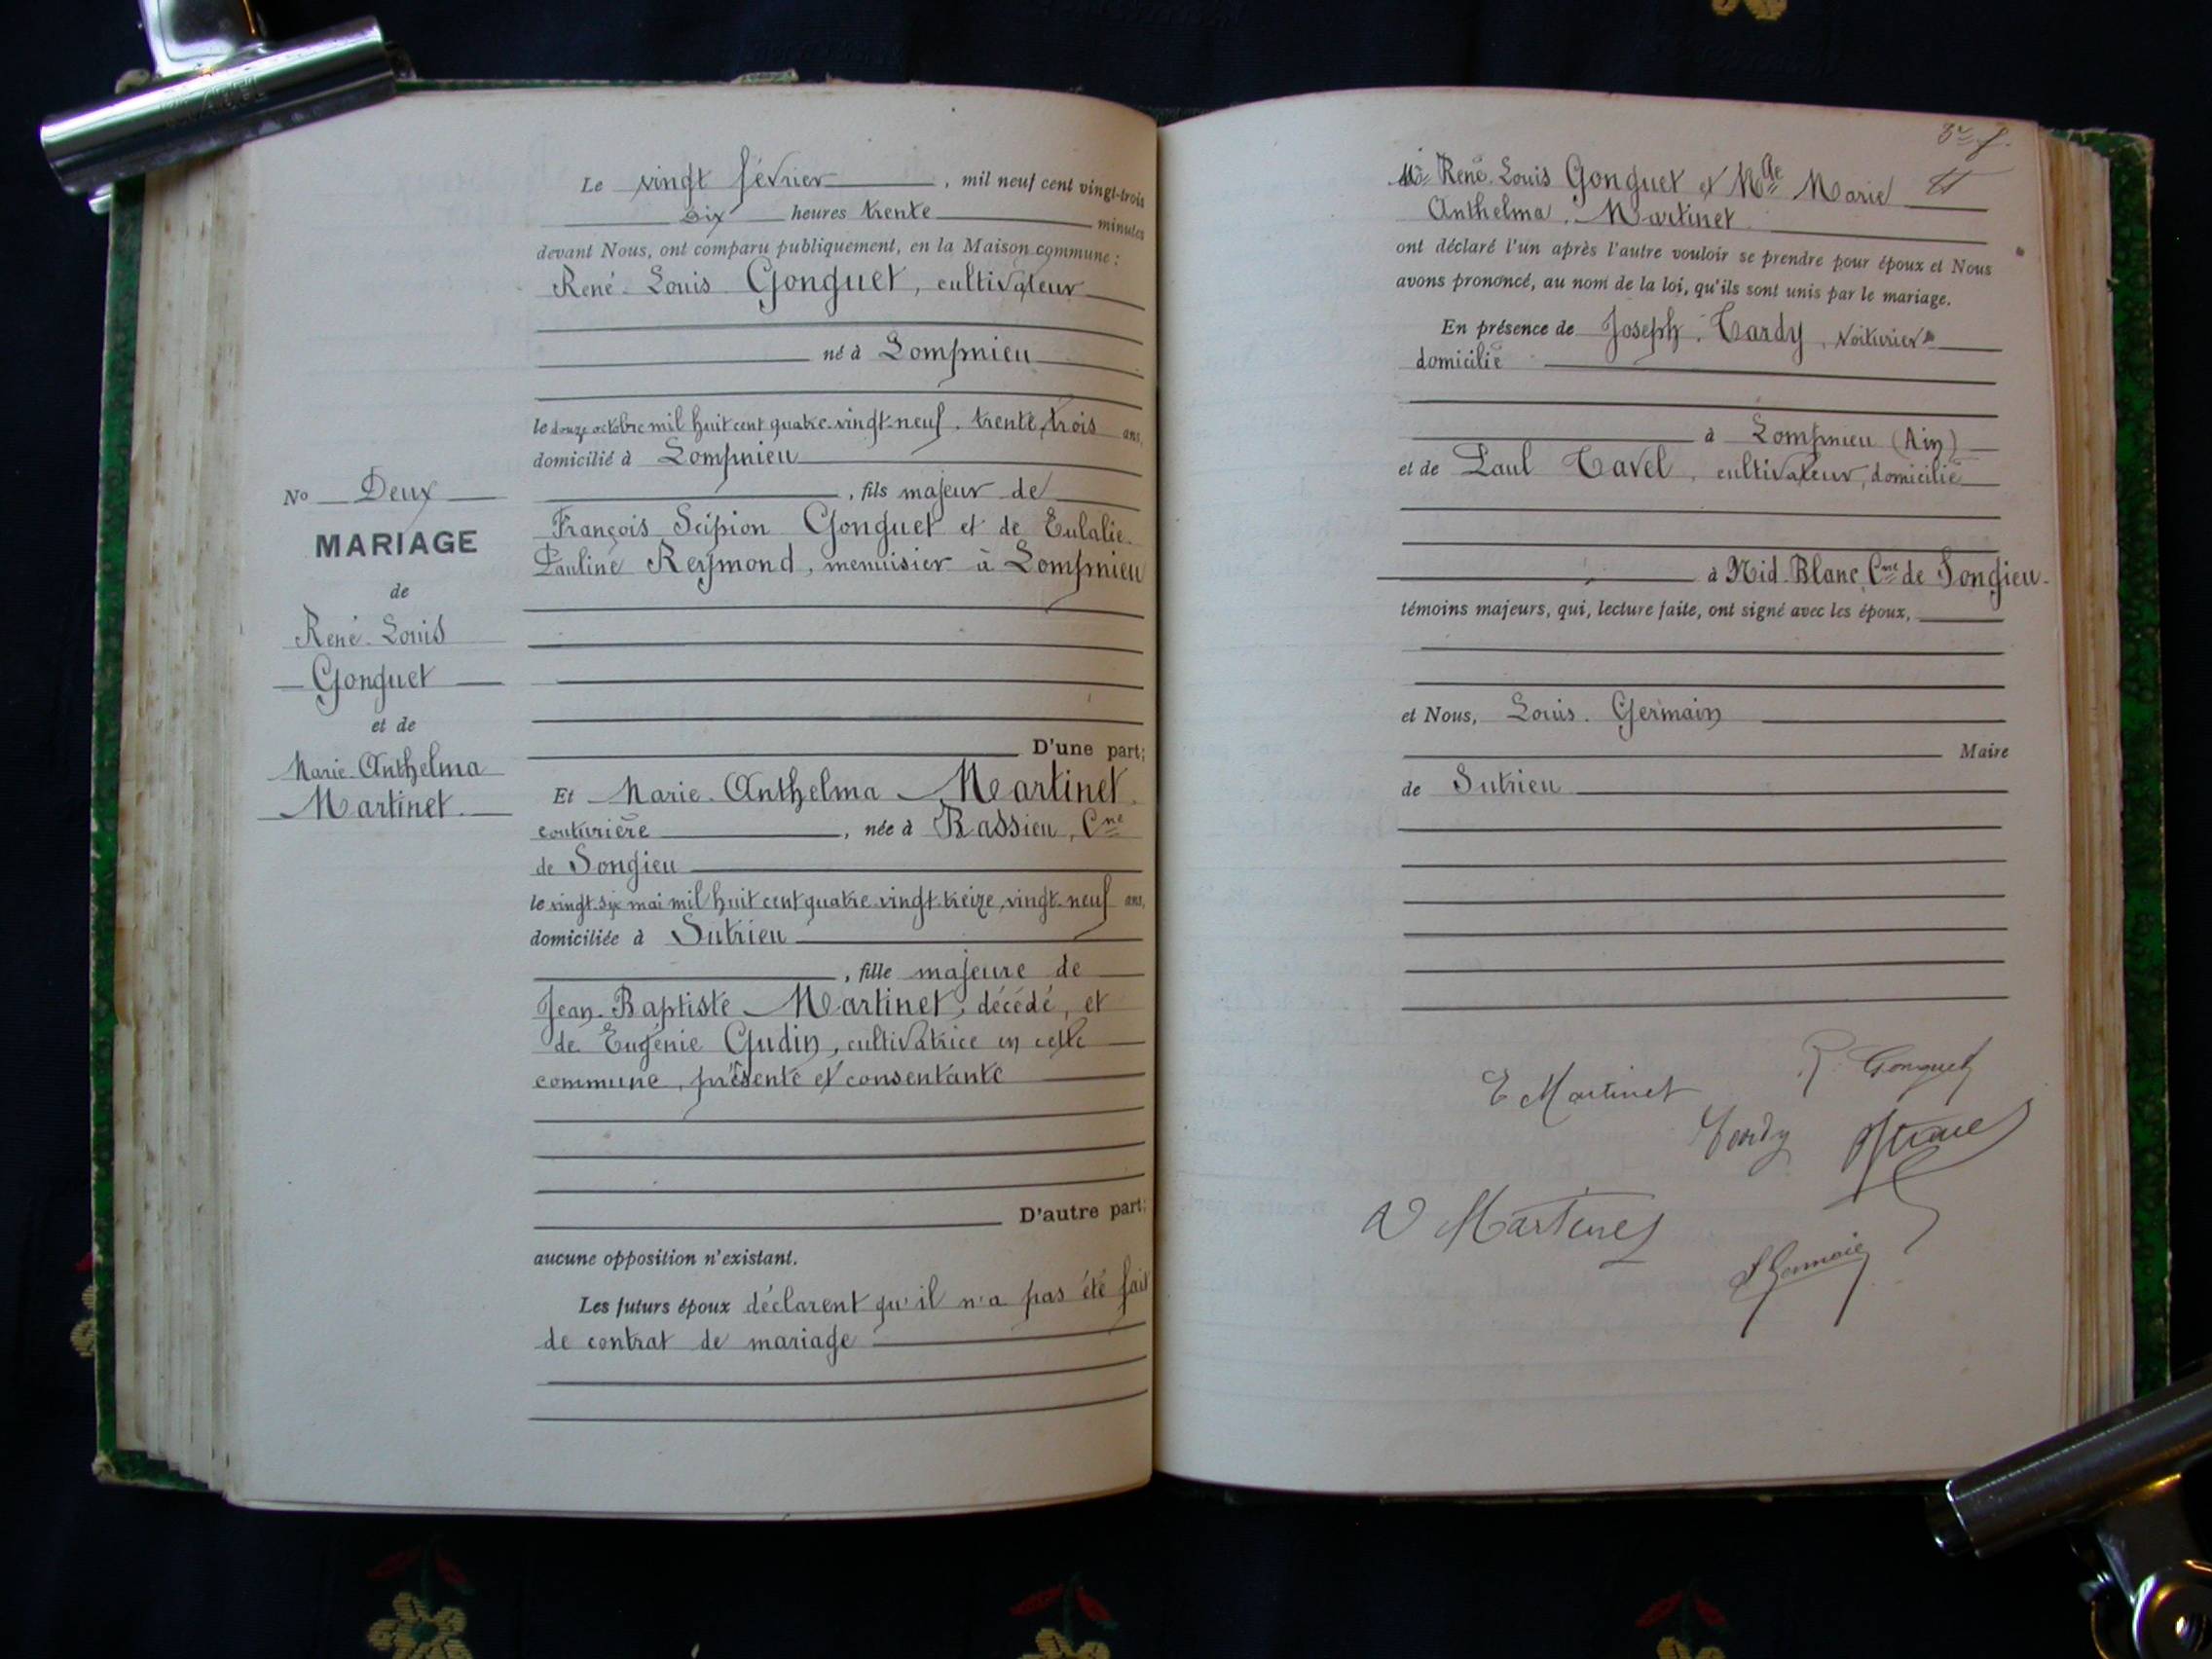 Le vingt février, mil neuf cent vingt-trois
dix heures trente minutes
devant Nous, ont comparu publiquement, en la Maison commune :
René-Louis Gonguet, cultivateur
né à Lompnieu
le douze octobre mil huit cent quatre-vingt-neuf, trente-trois ans,
domicilié à Lompnieu
, fils majeur de
François Scipion Gonguet et de Eulalie-
Pauline Reymond, menuisier à Lompnieu
No Deux
MARIAGE
de
René-Louis
Gonguet
et de
Marie-Anthelma
Martinet.
D'une part;
Et Marie-Anthelma Martinet.
couturière, née à Bassieu, Cne
de Songieu
le vingt-six mai mil huit cent quatre-vingt-treize, vingt-neuf ans,
domiciliée à Sutrieu
, fille majeure de
Jean-Baptiste Martinet, décédé, et
de Eugénie Gudin, cultivatrice en cette
commune, présente et consentante
D'autre part;
aucune opposition n'existant.
Les futurs époux déclarent qu'il n'a pas été fait
de contrat de mariage
3e f.
René-Louis Gonguet et Mlle Marie
Anthelma Martinet
ont déclaré l'un après l'autre vouloir se prendre pour époux et Nous
avons prononcé, au nom de la loi, qu'ils sont unis par le mariage.
En présence de Joseph Tardy, voiturier
domicilié
à Lompnieu (Ain)
et de Paul Tavel, cultivateur, domicilié
à Nid-Blanc Cne de Songieu.
témoins majeurs, qui, lecture faite, ont signé avec les époux,
et Nous, Louis Germain
Maire
de Sutrieu
R. Gonguet
E Martinet
Tardy
Martinet
L Germain